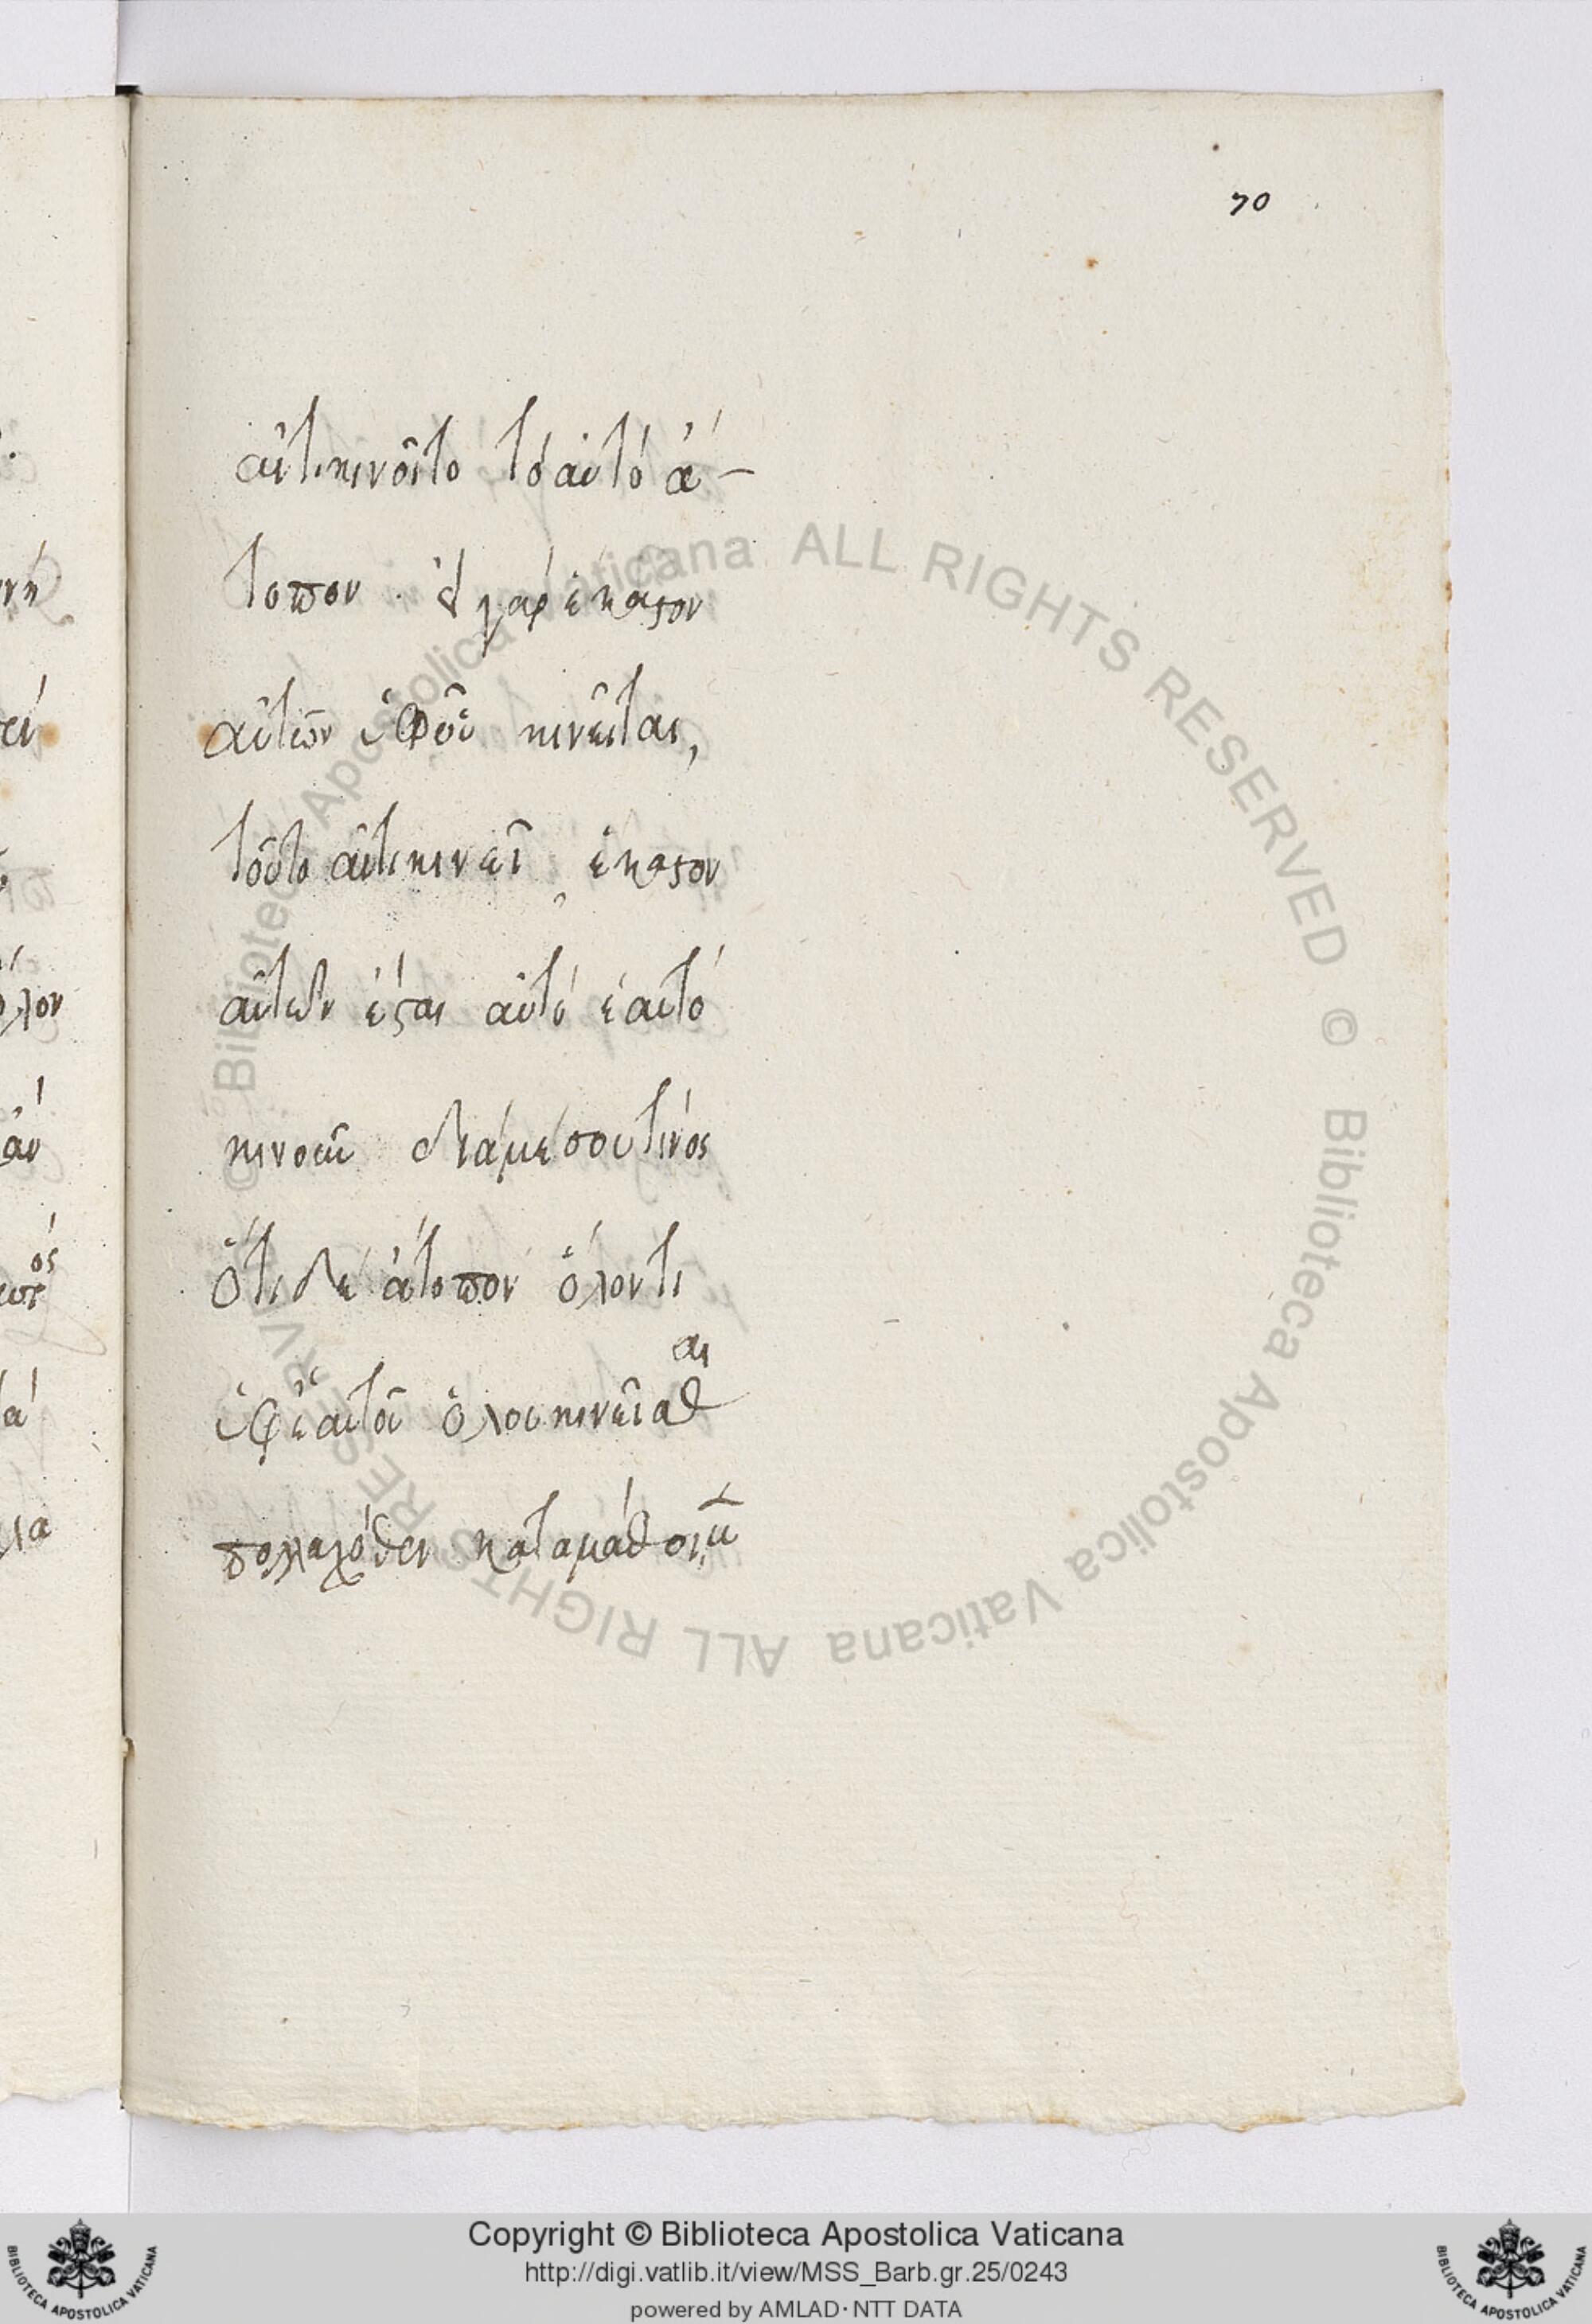 70
ἀντικινοῖτο τὸ αὐτὸ ἄ-
τοπον . εἰ γὰρ ἕκαστον
αὐτῶν ὑφ' οὗ κινεῖται,
τοῦτο ἀντικινεῖ ἕκαστον
αὐτῶν ἔσται αὐτὸ ἑαυτὸ
κινοῦν διὰ μέσου τινός
Ὅτι δὲ ἄτοπον ὅλον τι
ὑφ' ἑαυτοῦ ὅλου κινεῖσθαι
πολλαχόθεν καταμάθοιμεν
© Biblioteca Apostolica Vaticana ALL RIGHTS RESERVED © Biblioteca Apostolica Vaticana ALL RIGHTS RESERVED
Copyright © Biblioteca Apostolica Vaticana
http://digi.vatlib.it/view/MSS_Barb.gr.25/0243
powered by AMLAD·NTT DATA
BIBLIOTECA APOSTOLICA VATICANA
BIBLIOTECA APOSTOLICA VATICANA